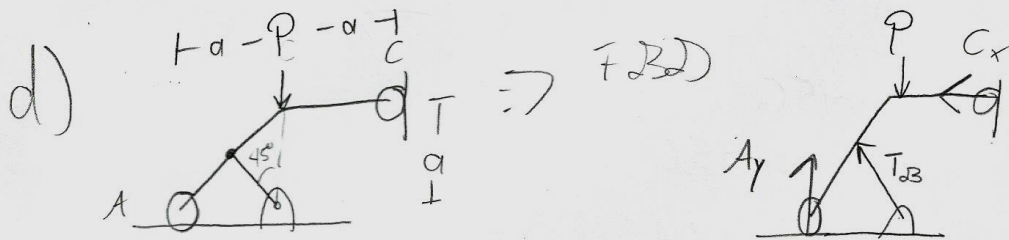 d)
⊢ a - P - a ⊣
C
T
a
⊥
45°
A
⇒ FBD
P
Cx
Ay
TB